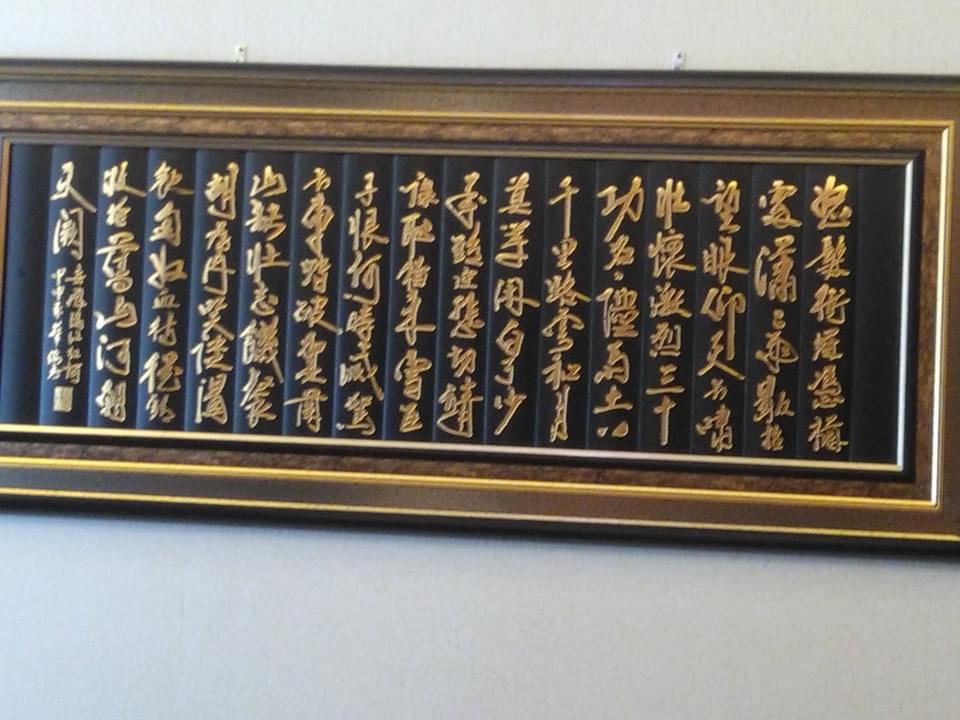 怒髮衝冠憑欄
處瀟瀟雨歇抬
望眼仰天長嘯
壯懷激烈三十
功名塵與土八
千里路雲和月
莫等閑白了少
年頭空悲切靖
康恥猶未雪臣
子恨何時滅駕
長車踏破賀蘭
山缺壯志饑餐
胡虜肉笑談渴
飲匈奴血待從頭
收拾舊山河朝
天闕
岳飛滿江紅詞